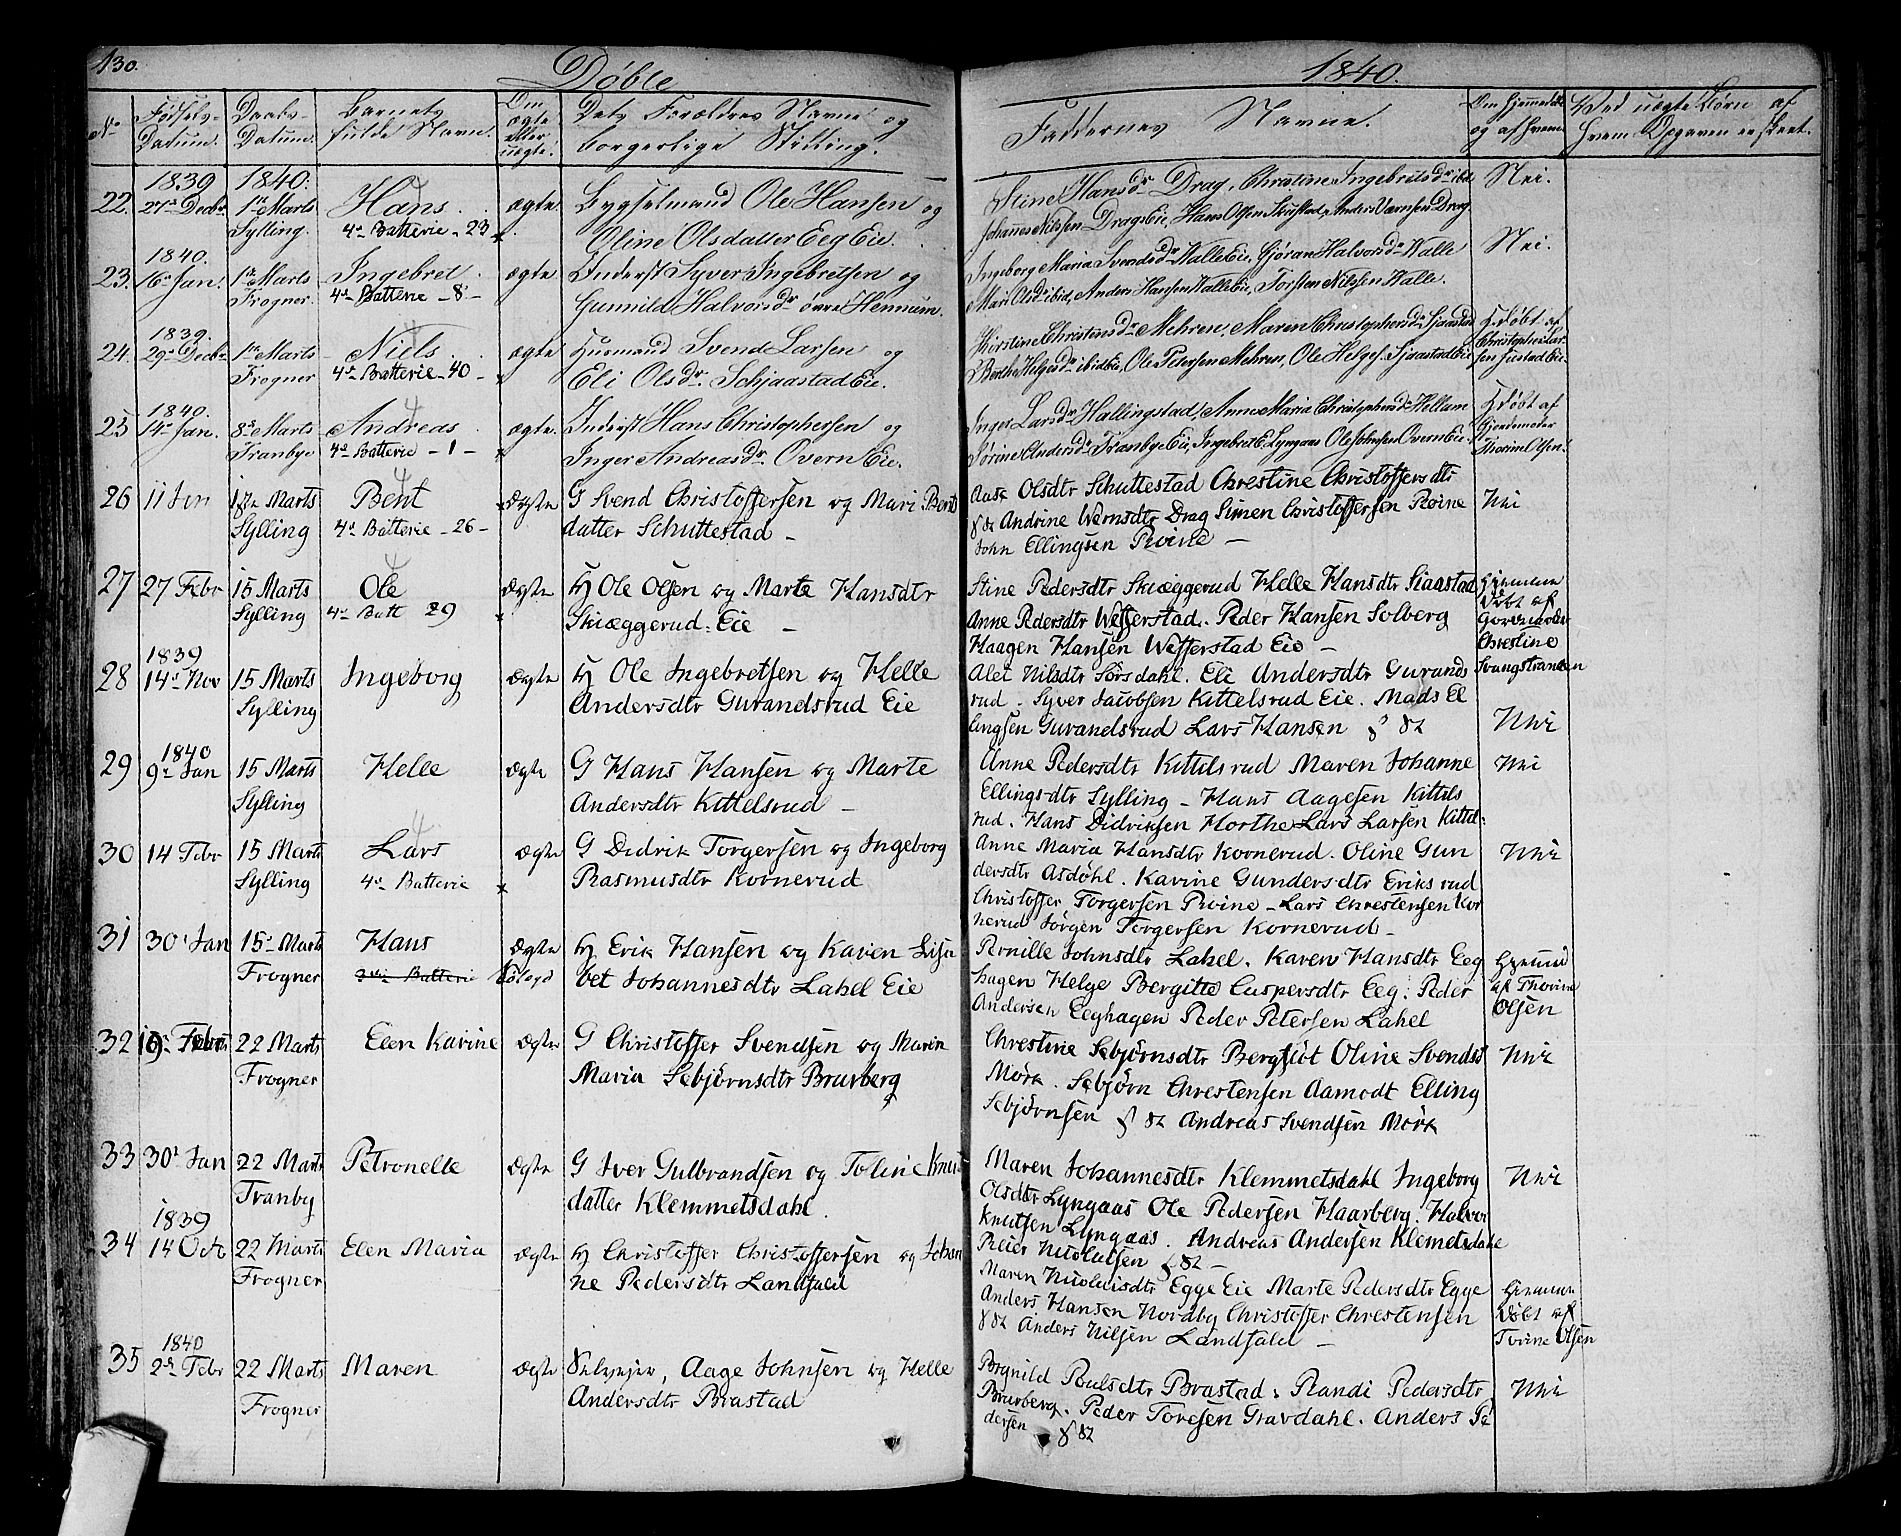 130.
Døbte
1840.
No
Fødsels-
Datum.
Daabs-
Datum.
Barnets
fulde Navn.
Om
ægte
eller
uægte.
Dets Forældres Navne og
borgerlige Stilling.
Faddernes Navne.
Om Hjemmedøbt
og af hvem.
Ved uægte Børn af
hvem Opgaven er skeet.
22.
1839
27de Decbr
1840.
1ste Marts
Sylling.
Hans.
4de Batterie - 23
ægte.
Bygselmand Ole Hansen og
Oline Olsdatter Eeg Eie.
Stine Hansdr Drag, Christine Ingebretsdr ibd
Johannes Nilsen Drags Eie, Hans Olsen Skustad, Anders Værnsen Drag.
Nei.
23.
1840.
16de Jan.
1ste Marts
Frogner.
Ingebret.
4de Batterie - 8 -
ægte.
Inderst Syver Ingebretsen og
Gunnild Halvorsdr øvre Hennum.
Ingeborg Maria Svendsdr Kalle Eie, Gjøran Halvorsdr Kalle
Mari Olsd ibid, Anders Hansen Kalle Eie, Torsten Nilssen Kalle.
Nei.
24.
1839.
29de Decbr
1ste Marts
Frogner
Niels.
4de Batterie - 40 -
ægte
Husmand Svend Larsen og
Eli Olsdr. Schjaastad Eie.
Kirstine Christensdr Mehren, Maren Christophersdr Sjaastad
Berthe Helgesdr ibid Eie, Ole Petersen Mehren, Ole Helges. Sjaastad Eie
Hdøbt af
Christopher Lar-
sen Sjustad Eie.
25
1840.
14de Jan.
8de Marts
Tranbye
Andreas.
4de Batterie - 1 -
ægte.
Inderst Hans Christophersen og
Inger Andreasdr. Overn Eie.
Inger Larsdr Hallingstad, Anne Maria Christophersdr Hellum
Sørine Andersdr Tranbye Eie, Ingebret E. Lyngaas Ole Johnsen Overn Eie.
Hdøbt af
Gjordemoder
Thorine Olsen.
26
11 Jan
Marts
Sylling
Bent
4de Batterie - 26 -
Ægte
G Svend Christoffersen og Mari Bents
datter Schuttestad -
Aase Olsdtr Schuttestad Chrestine Christoffersdtr
Andrine Wernsdtr Drag Simen Christoffersen Rvine
John Ellingsen Rvine -
Nei
27
27 Febr
15 Marts
Sylling
Ole
4de Batt 29
Ægte
H Ole Olsen og Marte Hansdtr
Skiæggerud: Eie -
Stine Pedersdtr Skiæggerud Helle Hansdtr Siaastad
Anne Pedersdtr Wefferstad. Peder Hansen Solberg
Haagen Hansen Wefferstad Eie -
Hjemme
døbt af
Chrestine
Svangstranden
28
1839
14de Nov
15 Marts
Sylling
Ingeborg
Ægte
H Ole Ingebretsen og Helle
Andersdtr Gurandsrud Eie
Alet Nilsdtr Sørsdahl. Eli Andersdtr Gurands
rud. Syver Jacobsen Kittelsrud Eie. Mads El
lingsen Gurandsrud Lars Hansen
Nei
29
1840
9de Jan
15 Marts
Sylling
Helle
Ægte
G Hans Hansen og Marte
Andersdtr Kittelsrud -
Anne Pedersdtr Kittelsrud Maren Johanne
Ellingsdtr Sylling - Hans Aagesen Kittels
rud. Hans Didriksen Horthe Lars Larsen Kittel:
Nei
30
14 Febr
15 Marts
Sylling
Lars
4de Batterie
Ægte
G Didrik Torgersen og Ingeborg
Rasmusdtr Kornerud
Anne Maria Hansdtr Kornerud. Oline Gun
dersdtr Asdøhl. Karine Gundersdtr Eriksrud
Christoffer Torgersen Rvine - Lars Chrestensen Kor
nerud Jørgen Torgersen Kornerud -
Nei
31
30 Jan
15 Marts
Frogner
Hans
Batteri
Ægte
H Erik Hansen og Karen Lisa
bet Johannesdtr Lahel Eie
Pernille Johnsdtr Lahel. Karen Hansdtr Eeg
hagen Helge Bergitte Caspersdtr Eeg. Peder
Andersen Eeghagen Peder Petersen Lahel
af Thorine
Olsen
32
Febr
22 Marts
Frogner
Elen Karine
Ægte
G Christoffer Svendsen og Maren
Maria Sebjørnsdtr Brurberg
Chrestine Sebjørnsdtr Bergflöt Oline Svendsd
Mørk. Sebjørn Chrestensen Aamodt Elling
Sebjørnsen Andreas Svendsen Mørk
Nei
33
30 Jan
22 Marts
Tranby
Petronelle
Ægte
G Iver Gulbrandsen og Toline Knus
datter Klemmetsdahl.
Maren Johannesdtr Klemmetsdahl Ingeborg
Olsdtr Lyngaas Ole Pedersen Haarberg. Halvor
Knutsen Lyngaas. Andreas Andersen Klemetsdahl
Reier Nicolaisen
Nei
34
1839
14 Octo
22 Marts
Frogner
Elen Maria
Ægte
H Christoffer Christoffersen og Johan
ne Pedersdtr Landfald
Maren Nicolaisdtr Egge Eie Marte Pedersdtr Egge
Anders Hansen Nordby Christoffer Chrestensen
Anders Nilsen Landfald -
Hjemme
døbt af
Torine Olsen
35
1840
2de Febr
22 Marts
Frogner
Maren
Ægte
Selveier, Aage Johnsen og Helle
Andersdtr Brastad
Bognild Poulsdtr Brastad. Randi Pedersdtr
Brurberg. Peder Toresen Gravdahl. Anders Pe
dersen
Nei